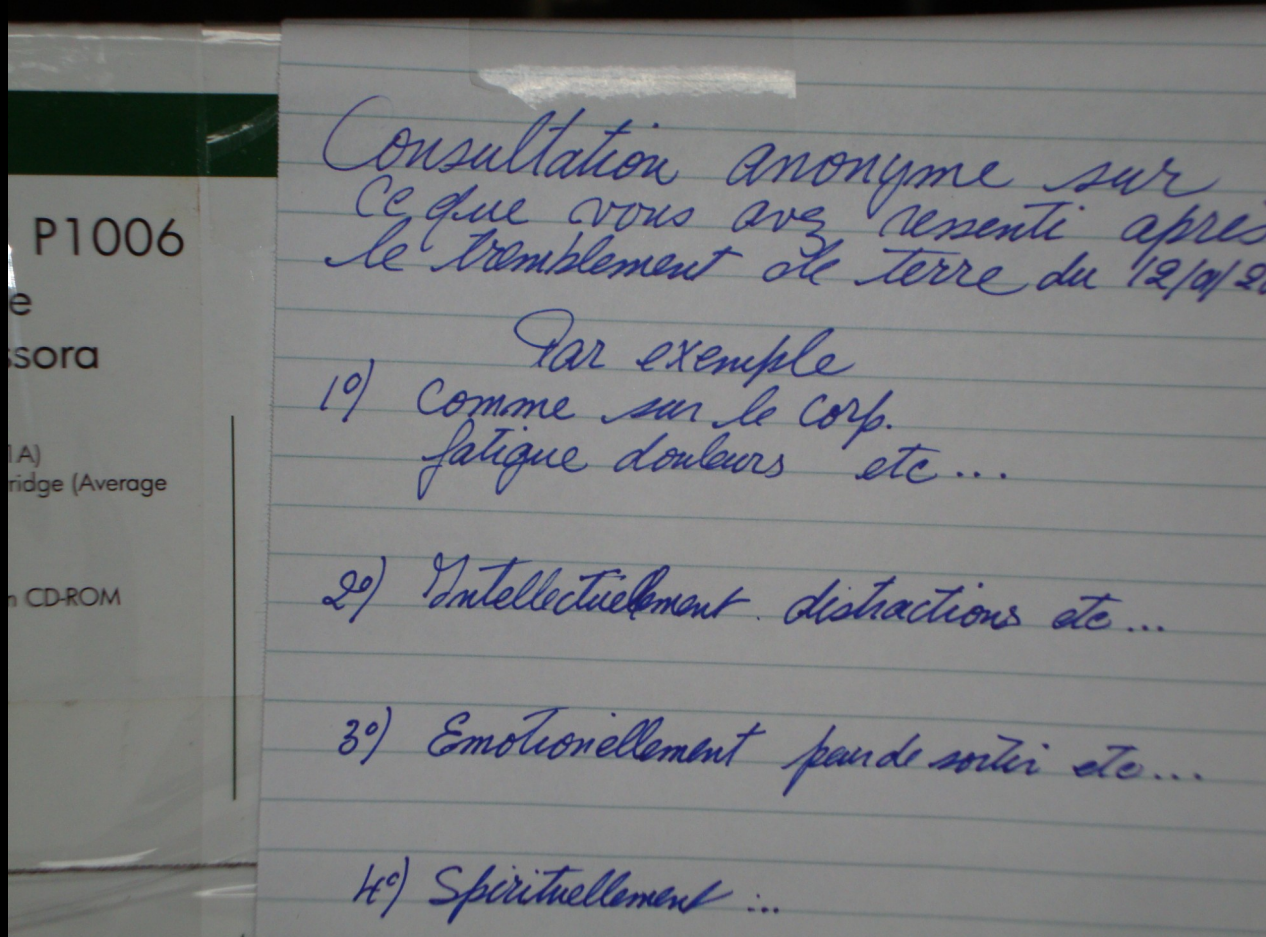 P1006
e
ssora
1A)
ridge (Average
n CD-ROM
Consultation anonyme sur
ce que vous avez ressenti après
le tremblement de terre du 12/01/20
Par exemple
1º) Comme sur le corp.
fatigue douleurs etc...
2º) Intellectuellement. distractions etc...
3º) Emotionellement peur de sortir etc...
4º) Spirituellement...